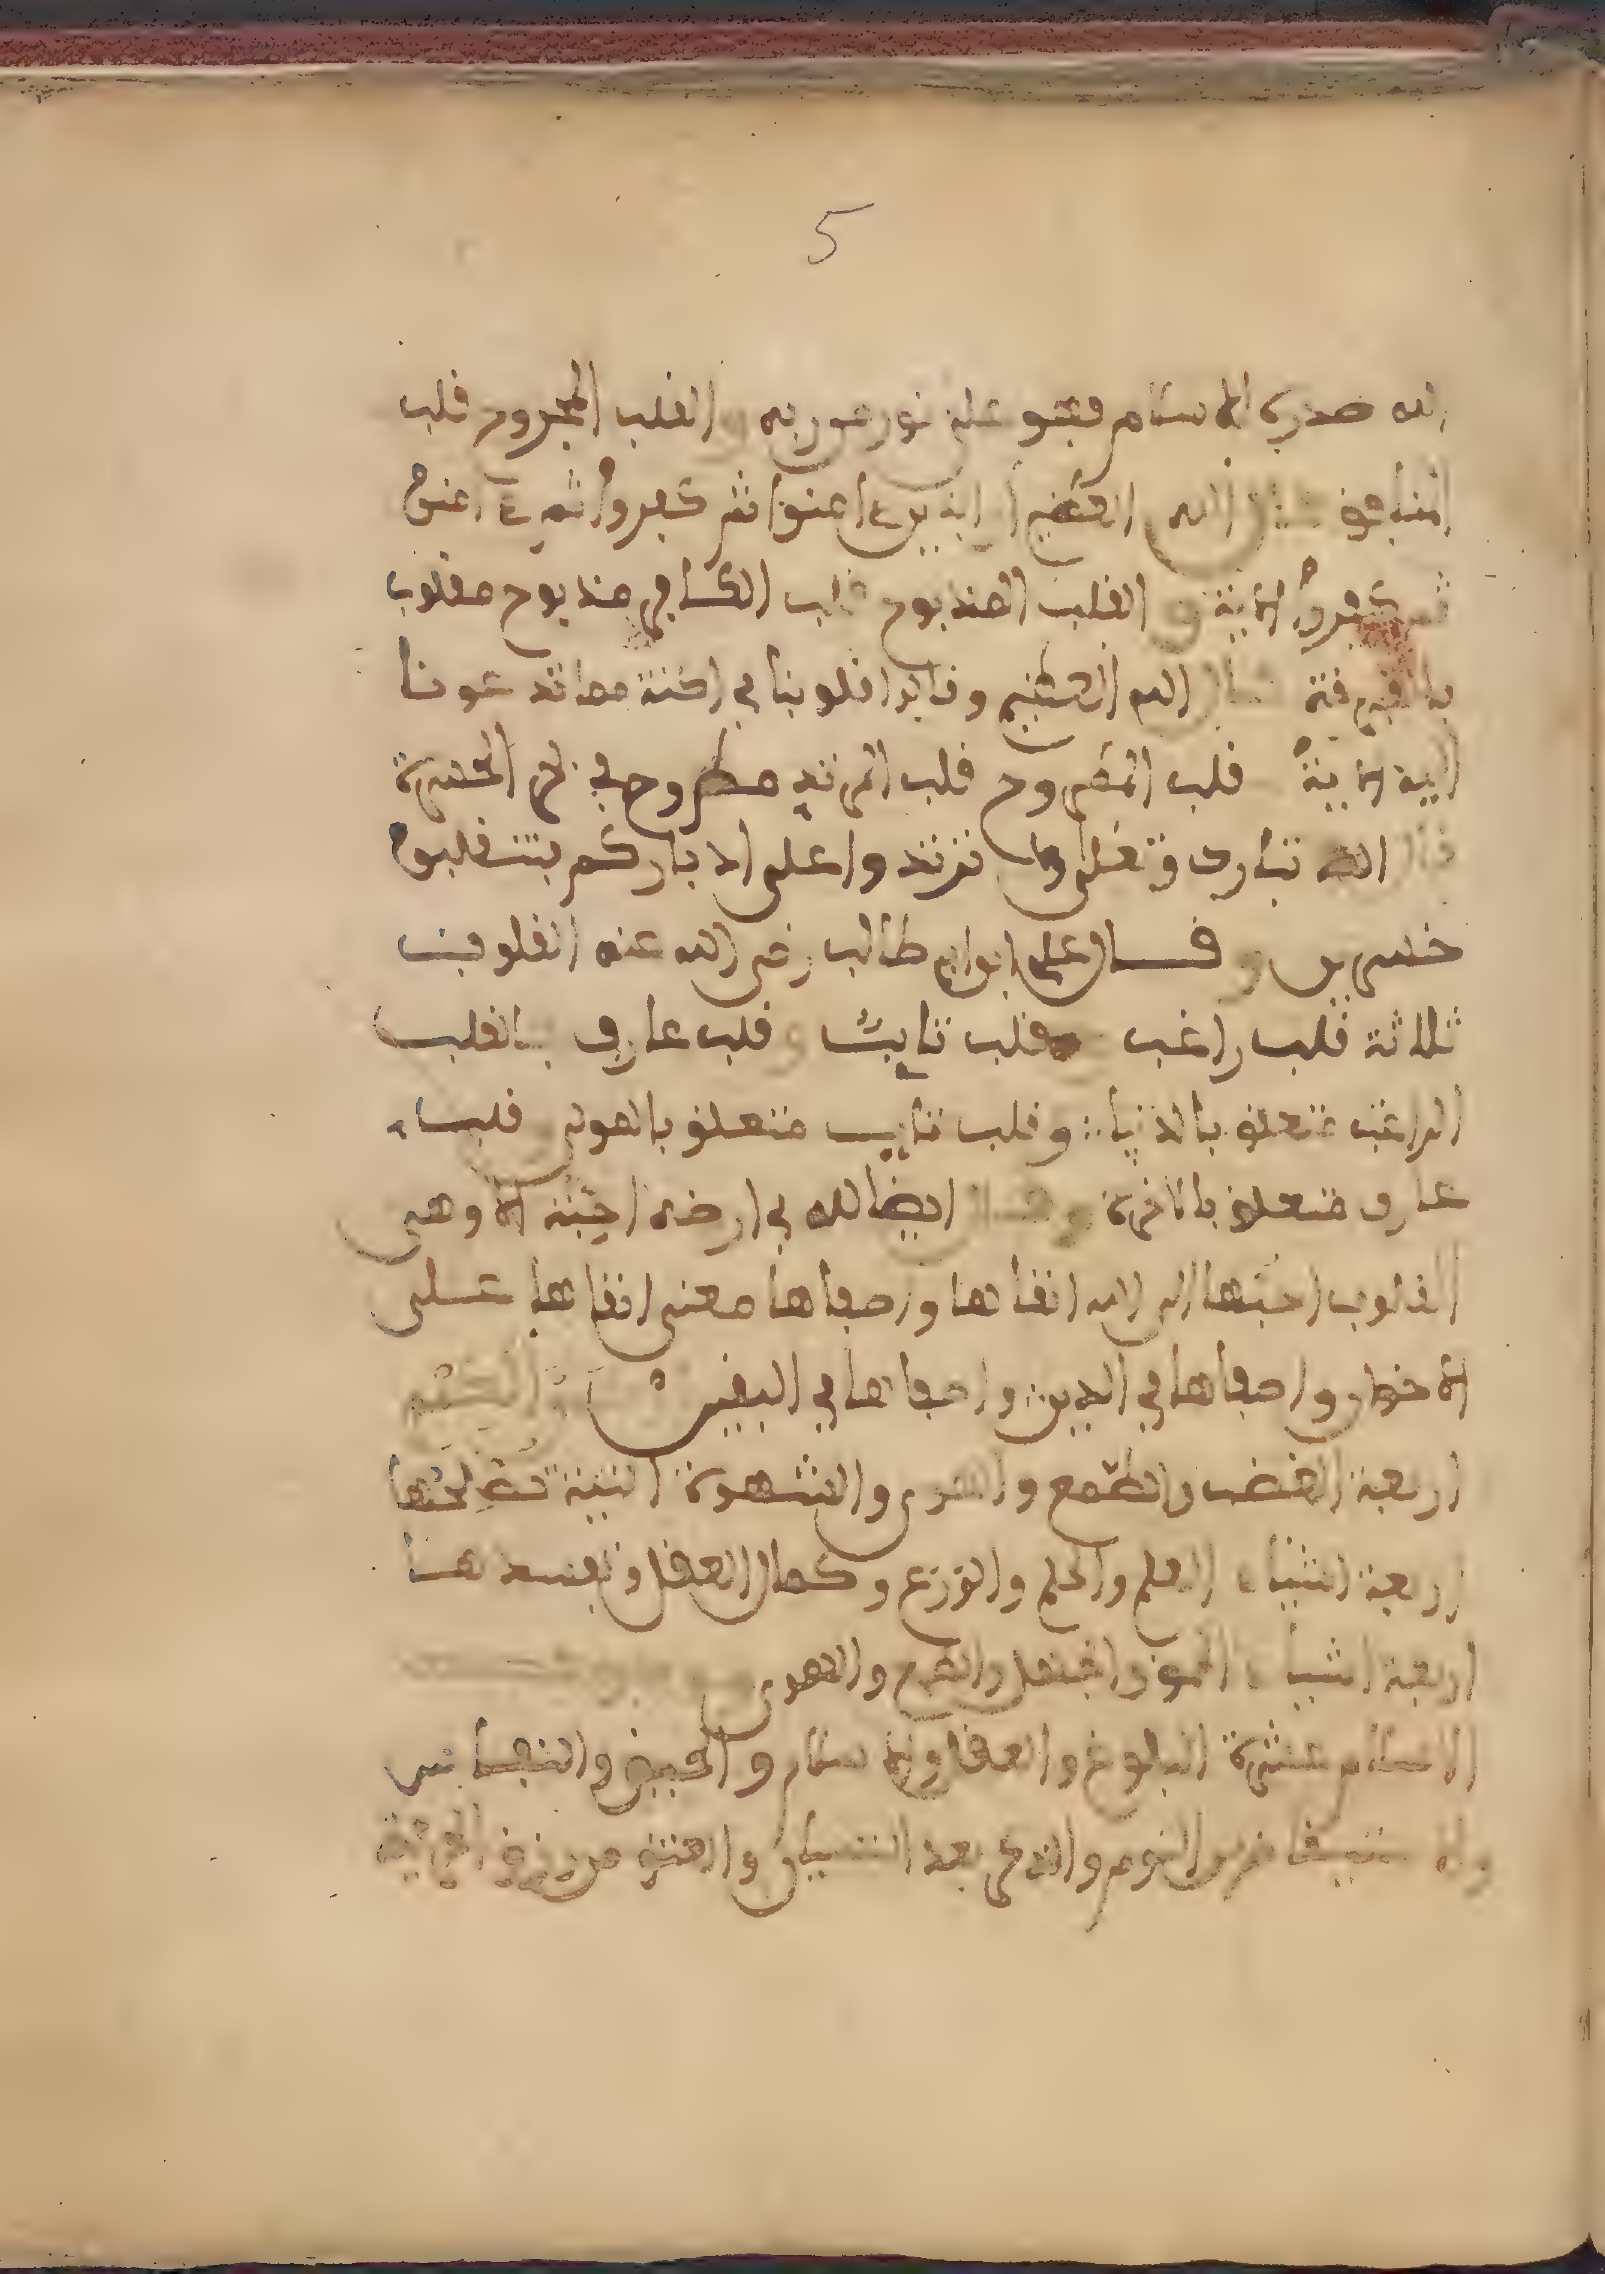 5
الله صدره للاسلام فهو على نور من ربه والقلب المجروح قلب
المنافق قال الله العظيم ان الذين ءامنوا ثم كفروا ثم ءامنوا
ثم كفروا الاية و القلب المذبوح قلب الكافر مذبوح مقلوب
قال الله العظيم وقالوا قلوبنا في اكنة مما تدعونا
اليه الاية قلب المطروح قلب المرتد مطروح في بحر الحسرة
قال الله تبارك وتعلى ولا ترتدوا على ادباركم فتنقلبوا
خسرين و قال علي ابن ابي طالب رضي الله عنه القلوب
ثلاثة قلب راغب وقلب تايب و قلب عارف فالقلب
الراغب متعلق بالدنيا وقلب تايب متعلق بالمولى قلب
عارف متعلق بالاخرة وقال ايضا لله في ارضه احبته الا وهي
القلوب احبها الى الله انقاها واصفاها معنى انقاها على
الاخوان واصفاها في الدين واصفاها في اليقين
اربعة الغضب والطمع والهوى والشهوة التية تصلحها
اربعة اشياء العلم والحلم والورع وكمال العقل وتفسدها
اربعة اشياء الحمق والجهل والهوى
الاسلام عشرة البلوغ والعقل والاسلام والحيض والنفاس
والنوم والذكر بعد النسيان والعتق من رق الحرية